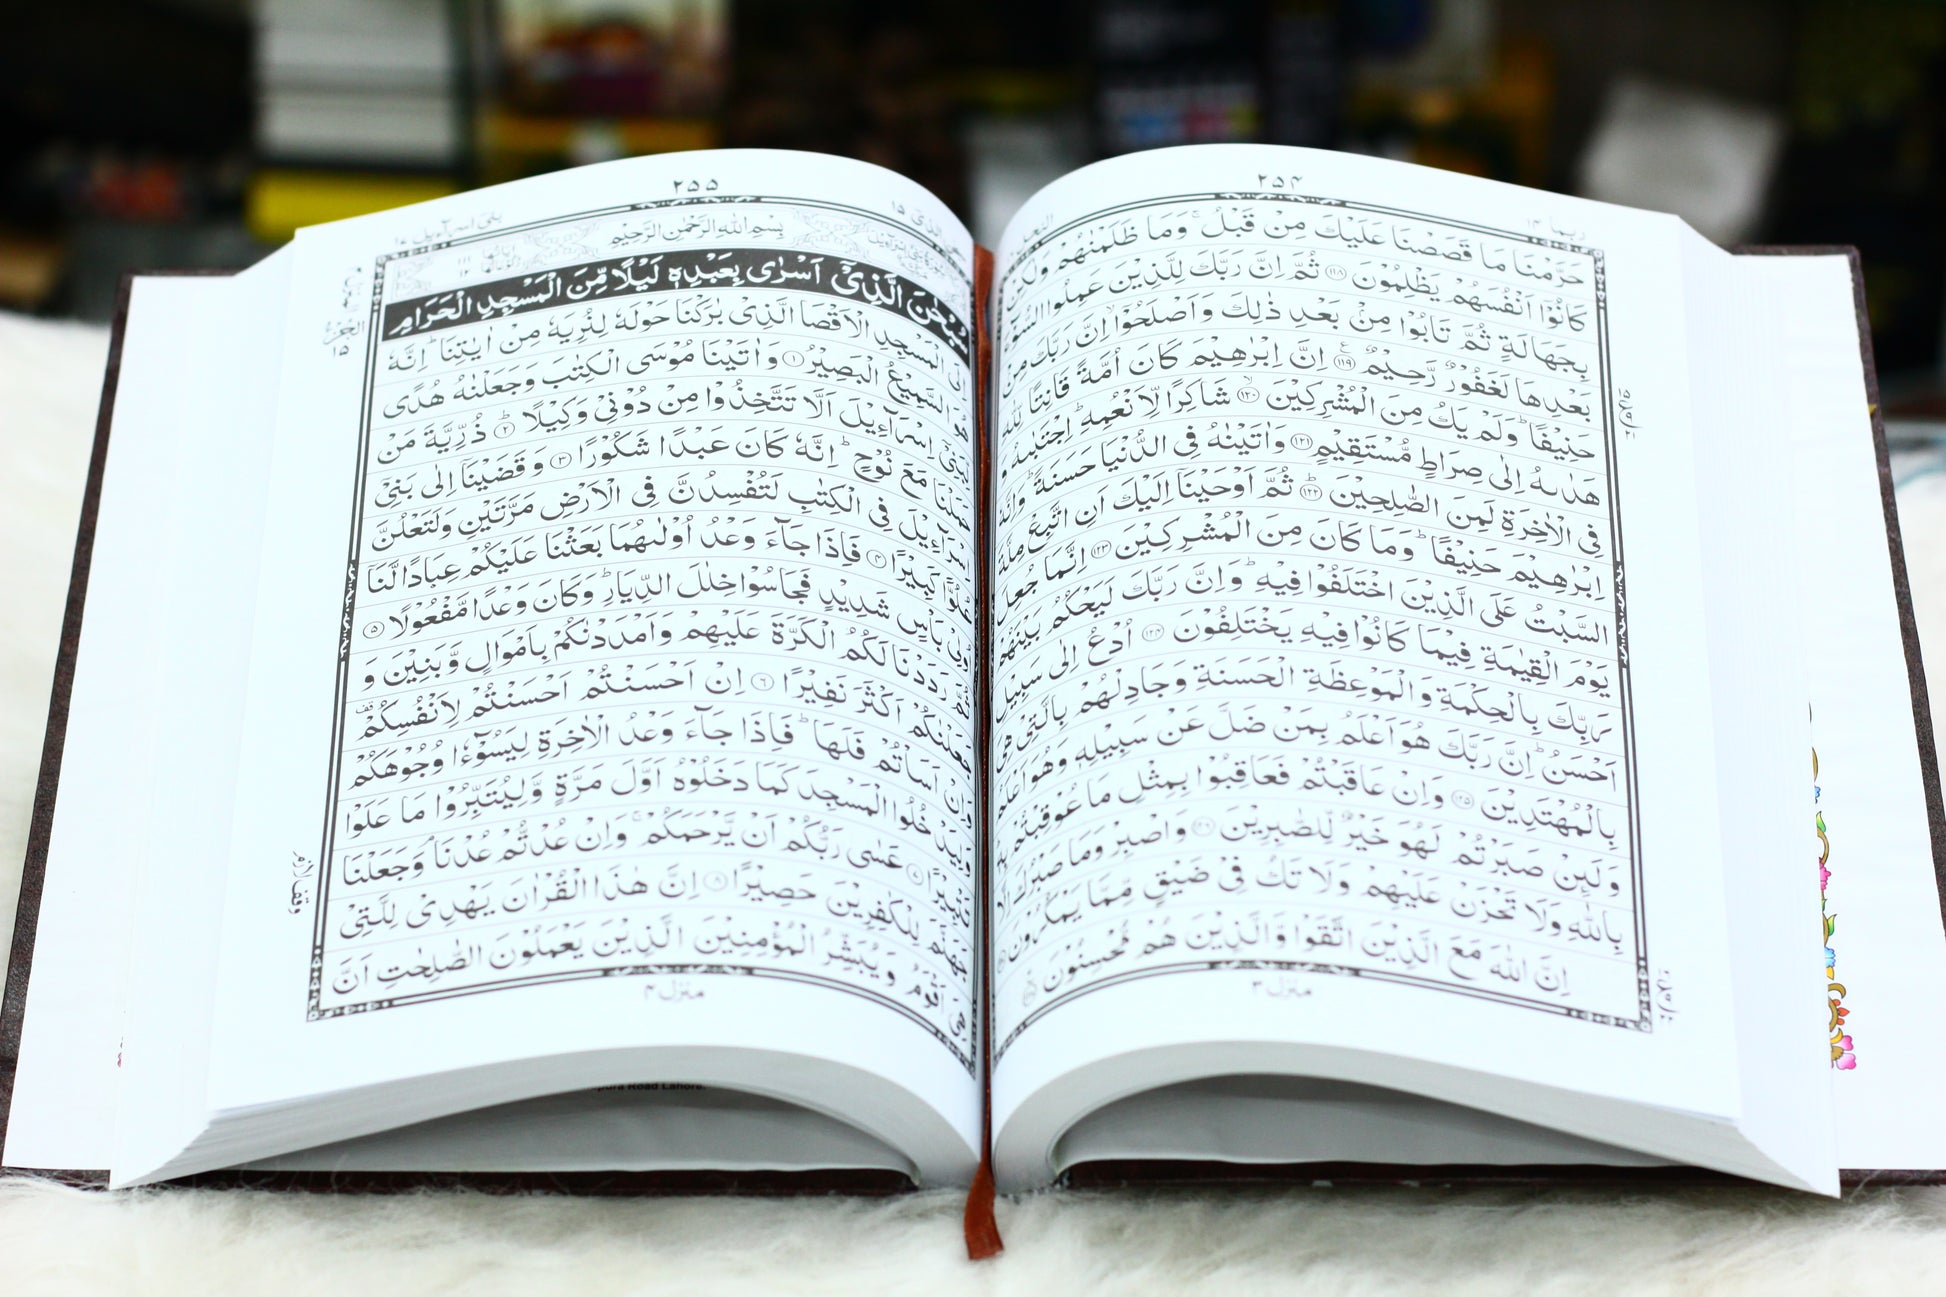 ۲۵۴
ربما ۱۴
حَرَّمْنَا مَا قَصَصْنَا عَلَيْكَ مِنْ قَبْلُ ۚ وَمَا ظَلَمْنٰهُمْ وَلٰكِنْ
كَانُوْٓا اَنْفُسَهُمْ يَظْلِمُوْنَ ﴿۱۱۸﴾ ثُمَّ اِنَّ رَبَّكَ لِلَّذِيْنَ عَمِلُوا السُّوْٓءَ
بِجَهَالَةٍ ثُمَّ تَابُوْا مِنْۢ بَعْدِ ذٰلِكَ وَاَصْلَحُوْٓا اِنَّ رَبَّكَ مِنْۢ
بَعْدِهَا لَغَفُوْرٌ رَّحِيْمٌ ﴿۱۱۹﴾ اِنَّ اِبْرٰهِيْمَ كَانَ اُمَّةً قَانِتًا لِّلّٰهِ
حَنِيْفًا ؕ وَلَمْ يَكُ مِنَ الْمُشْرِكِيْنَ ﴿۱۲۰﴾ شَاكِرًا لِّاَنْعُمِهٖ ؕ اِجْتَبٰىهُ وَ
هَدٰىهُ اِلٰى صِرَاطٍ مُّسْتَقِيْمٍ ﴿۱۲۱﴾ وَاٰتَيْنٰهُ فِى الدُّنْيَا حَسَنَةً ؕ وَاِنَّهٗ
فِى الْاٰخِرَةِ لَمِنَ الصّٰلِحِيْنَ ﴿۱۲۲﴾ ثُمَّ اَوْحَيْنَآ اِلَيْكَ اَنِ اتَّبِعْ مِلَّةَ
اِبْرٰهِيْمَ حَنِيْفًا ؕ وَمَا كَانَ مِنَ الْمُشْرِكِيْنَ ﴿۱۲۳﴾ اِنَّمَا جُعِلَ
السَّبْتُ عَلَى الَّذِيْنَ اخْتَلَفُوْا فِيْهِ ؕ وَاِنَّ رَبَّكَ لَيَحْكُمُ بَيْنَهُمْ
يَوْمَ الْقِيٰمَةِ فِيْمَا كَانُوْا فِيْهِ يَخْتَلِفُوْنَ ﴿۱۲۴﴾ اُدْعُ اِلٰى سَبِيْلِ
رَبِّكَ بِالْحِكْمَةِ وَالْمَوْعِظَةِ الْحَسَنَةِ وَجَادِلْهُمْ بِالَّتِىْ هِىَ
اَحْسَنُ ؕ اِنَّ رَبَّكَ هُوَ اَعْلَمُ بِمَنْ ضَلَّ عَنْ سَبِيْلِهٖ وَهُوَ اَعْلَمُ
بِالْمُهْتَدِيْنَ ﴿۱۲۵﴾ وَاِنْ عَاقَبْتُمْ فَعَاقِبُوْا بِمِثْلِ مَا عُوْقِبْتُمْ بِهٖ
وَلَئِنْ صَبَرْتُمْ لَهُوَ خَيْرٌ لِّلصّٰبِرِيْنَ ﴿۱۲۶﴾ وَاصْبِرْ وَمَا صَبْرُكَ اِلَّا
بِاللّٰهِ وَلَا تَحْزَنْ عَلَيْهِمْ وَلَا تَكُ فِىْ ضَيْقٍ مِّمَّا يَمْكُرُوْنَ
اِنَّ اللّٰهَ مَعَ الَّذِيْنَ اتَّقَوْا وَّالَّذِيْنَ هُمْ مُّحْسِنُوْنَ
منزل ۳
۲۵۵
بنىٓ اسرآءيل ۱۷
سبحٰن الذىٓ ۱۵
بِسْمِ اللّٰهِ الرَّحْمٰنِ الرَّحِيْمِ
سُبْحٰنَ الَّذِىْٓ اَسْرٰى بِعَبْدِهٖ لَيْلًا مِّنَ الْمَسْجِدِ الْحَرَامِ
اِلَى الْمَسْجِدِ الْاَقْصَا الَّذِىْ بٰرَكْنَا حَوْلَهٗ لِنُرِيَهٗ مِنْ اٰيٰتِنَا ؕ اِنَّهٗ
هُوَ السَّمِيْعُ الْبَصِيْرُ ﴿۱﴾ وَاٰتَيْنَا مُوْسَى الْكِتٰبَ وَجَعَلْنٰهُ هُدًى
لِّبَنِىْٓ اِسْرَآءِيْلَ اَلَّا تَتَّخِذُوْا مِنْ دُوْنِىْ وَكِيْلًا ﴿۲﴾ ذُرِّيَّةَ مَنْ
حَمَلْنَا مَعَ نُوْحٍ ؕ اِنَّهٗ كَانَ عَبْدًا شَكُوْرًا ﴿۳﴾ وَقَضَيْنَآ اِلٰى بَنِىْٓ
اِسْرَآءِيْلَ فِى الْكِتٰبِ لَتُفْسِدُنَّ فِى الْاَرْضِ مَرَّتَيْنِ وَلَتَعْلُنَّ
عُلُوًّا كَبِيْرًا ﴿۴﴾ فَاِذَا جَآءَ وَعْدُ اُوْلٰىهُمَا بَعَثْنَا عَلَيْكُمْ عِبَادًا لَّنَآ
اُولِىْ بَاْسٍ شَدِيْدٍ فَجَاسُوْا خِلٰلَ الدِّيَارِ ؕ وَكَانَ وَعْدًا مَّفْعُوْلًا ﴿۵﴾
ثُمَّ رَدَدْنَا لَكُمُ الْكَرَّةَ عَلَيْهِمْ وَاَمْدَدْنٰكُمْ بِاَمْوَالٍ وَّبَنِيْنَ وَ
جَعَلْنٰكُمْ اَكْثَرَ نَفِيْرًا ﴿۶﴾ اِنْ اَحْسَنْتُمْ اَحْسَنْتُمْ لِاَنْفُسِكُمْ
وَاِنْ اَسَاْتُمْ فَلَهَا ؕ فَاِذَا جَآءَ وَعْدُ الْاٰخِرَةِ لِيَسُوْٓءٗا وُجُوْهَكُمْ
وَلِيَدْخُلُوا الْمَسْجِدَ كَمَا دَخَلُوْهُ اَوَّلَ مَرَّةٍ وَّلِيُتَبِّرُوْا مَا عَلَوْا
تَتْبِيْرًا ﴿۷﴾ عَسٰى رَبُّكُمْ اَنْ يَّرْحَمَكُمْ ۚ وَاِنْ عُدْتُّمْ عُدْنَا ۘ وَجَعَلْنَا
جَهَنَّمَ لِلْكٰفِرِيْنَ حَصِيْرًا ﴿۸﴾ اِنَّ هٰذَا الْقُرْاٰنَ يَهْدِىْ لِلَّتِىْ
هِىَ اَقْوَمُ وَيُبَشِّرُ الْمُؤْمِنِيْنَ الَّذِيْنَ يَعْمَلُوْنَ الصّٰلِحٰتِ اَنَّ
منزل ۴
الجزء ۱۵
وقف لازم
Road Lahore.